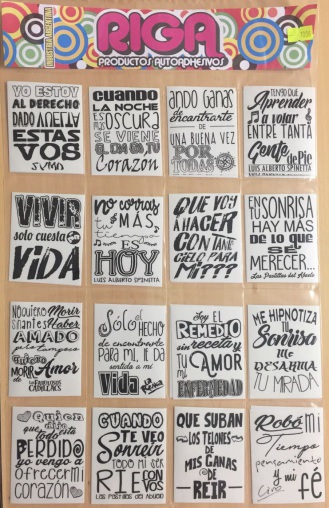 INDUSTRIA ARGENTINA
RIGA
PRODUCTOS AUTOADHESIVOS
YO ESTOY
AL DERECHO
DADO VUELTA
ESTAS
VOS
SUMO
CUANDO
LA NOCHE
ES MAS
OSCURA
SE VIENE
EL DIA EN TU
Corazón
ANDO GANAS
encontrarte
DE
UNA BUENA VEZ
POR
TODAS
TENGO QUE
Aprender
a volar
ENTRE TANTA
Gente
de Pie
LUIS ALBERTO SPINETTA
VIVIR
solo cuesta
VIDA
no corras
MÁS
tu
tiempo
ES
HOY
LUIS ALBERTO SPINETTA
QUE VOY
A HACER
CON TAN
TE
CIELO PARA
MI???
EN TU
SONRISA
HAY MAS
DE LO QUE
SE
MERECER...
Las Pastillas del Abuelo
NO QUIERO Morir
SIN ANTES Haber
AMADO
pero tampoco
quiero
MORIR
DE Amor
LOS FABULOSOS
CADILLACS
Sólo
EL HECHO
de encontrarte
PARA MI, LE DA
sentido a mi
Vida
La Renga
Soy EL
REMEDIO
sin receta y
TU AMOR
Mi
ENFERMEDAD
ME HIPNOTIZA
TU
Sonrisa
Me
DESARMA
TU MIRADA
Quien
dijo
que todo está
PERDIDO
yo vengo a
ofrecer mi
corazón
CUANDO
TE VEO
Sonreir
TODO MI SER
RIE
CON
VOS
LAS PASTILLAS DEL ABUELO
QUE SUBAN
LOS TELONES
DE
MIS GANAS
DE
REIR
Robá mi
Tiempo
pensamiento
y mi
fé
Ciro